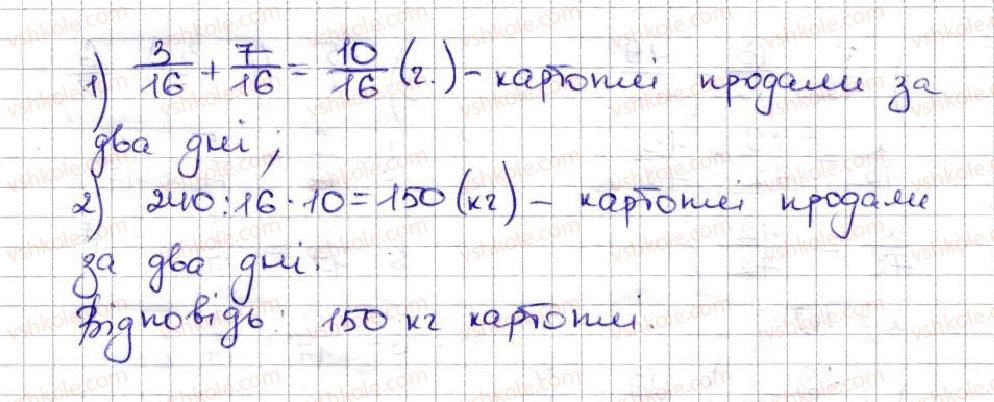 1) 3/16 + 7/16 = 10/16 (г.) – картоплі продали за
два дні;
2) 240:16·10=150 (кг) – картоплі продали
за два дні.
Відповідь: 150 кг картоплі.